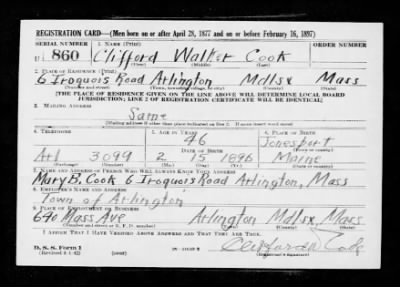 REGISTRATION CARD—(Men born on or after April 28, 1877 and on or before February 16, 1897)
SERIAL NUMBER 1. NAME (Print) ORDER NUMBER
U 860 Clifford Walker Cook
(First) (Middle) (Last)
2. PLACE OF RESIDENCE (Print)
6 Iroquois Road Arlington Mdlsx Mass
(Number and street) (Town, township, village, or city) (County) (State)
[THE PLACE OF RESIDENCE GIVEN ON THE LINE ABOVE WILL DETERMINE LOCAL BOARD
JURISDICTION; LINE 2 OF REGISTRATION CERTIFICATE WILL BE IDENTICAL]
3. MAILING ADDRESS
Same
[Mailing address if other than place indicated on line 2. If same insert word same]
4. TELEPHONE 5. AGE IN YEARS 6. PLACE OF BIRTH
46 Jonesport
DATE OF BIRTH
Arl 3099 2 15 1896 Maine
(Exchange) (Number) (Mo.) (Day) (Yr.) (State or country)
7. NAME AND ADDRESS OF PERSON WHO WILL ALWAYS KNOW YOUR ADDRESS
Mary B. Cook 6 Iroquois Road Arlington, Mass
8. EMPLOYER'S NAME AND ADDRESS
Town of Arlington
9. PLACE OF EMPLOYMENT OR BUSINESS
690 Mass Ave Arlington Mdlsx. Mass.
(Number and street or R. F. D. number) (Town) (County) (State)
I AFFIRM THAT I HAVE VERIFIED ABOVE ANSWERS AND THAT THEY ARE TRUE.
D. S. S. Form 1
(Revised 4-1-42) (over) Clifford W Cook